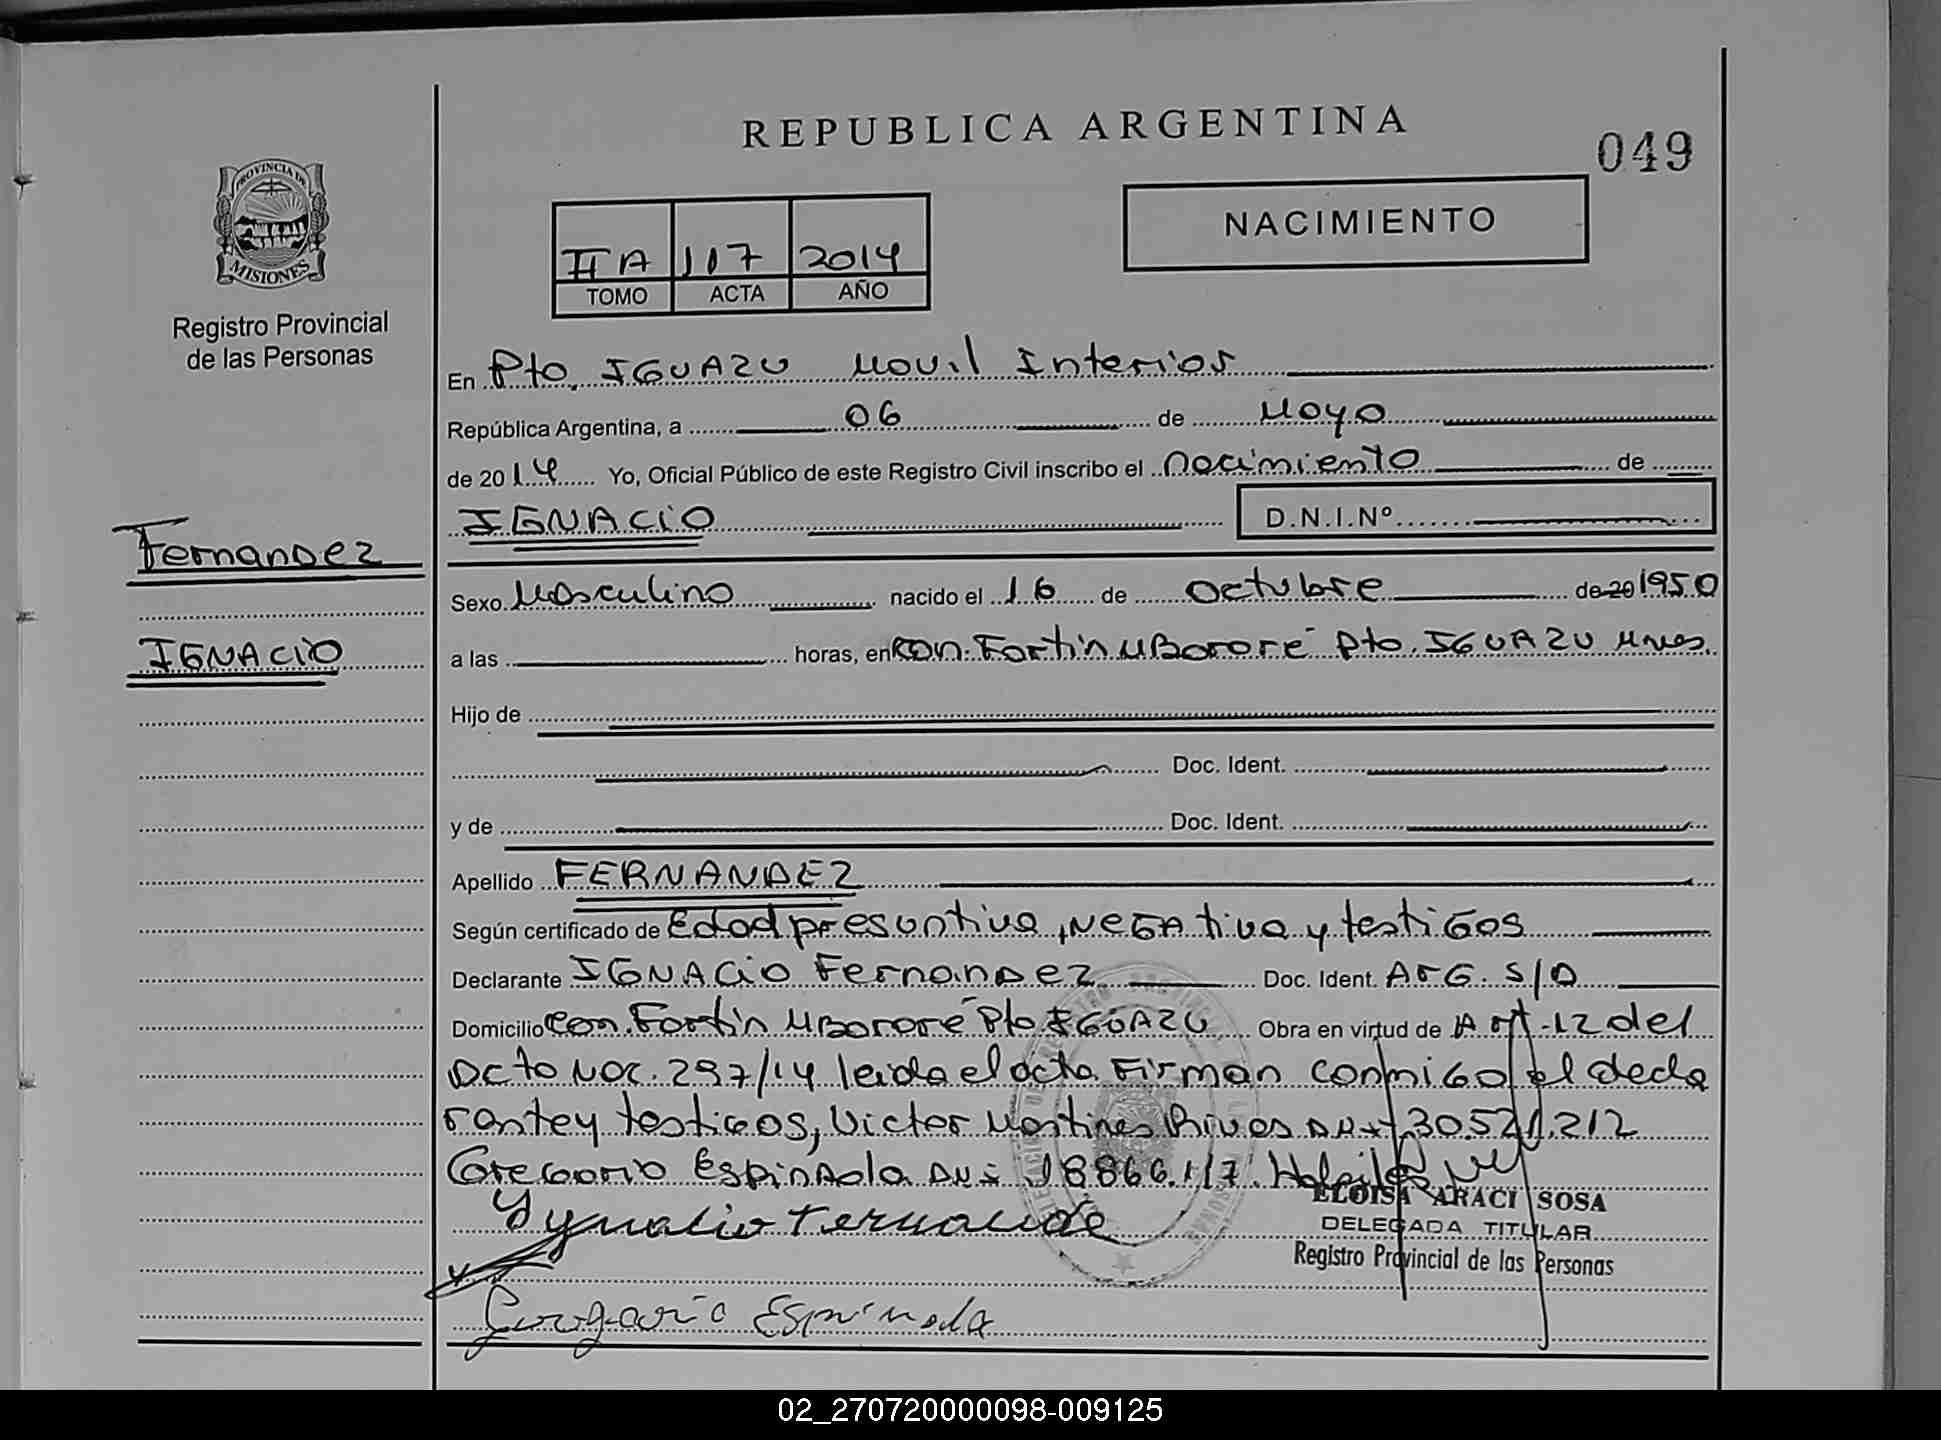 REPUBLICA ARGENTINA
049
PROVINCIA DE
MISIONES
Registro Provincial
de las Personas
NACIMIENTO
II A 117 2014
TOMO ACTA AÑO
En Pto. IGUAZU Movil Interior
República Argentina, a 06 de Mayo
de 2014 Yo, Oficial Público de este Registro Civil inscribo el nacimiento de
IGNACIO D.N.I.Nº
Fernandez
IGNACIO
Sexo Masculino nacido el 16 de octubre de 20 1950
a las horas, en con. Fortin MBororé Pto. IGUAZU Mnes.
Hijo de
Doc. Ident.
y de Doc. Ident.
Apellido FERNANDEZ
Según certificado de Edad presuntiva, NEGAtiva y testiGos
Declarante IGNACIO Fernandez Doc. Ident. ArG. S/D
Domicilio Con. Fortin MBororé Pto IGUAZU Obra en virtud de Art. 12 del
Dcto Nac. 297/14 leida el acta Firman conmiGo el decla
rante y testigos, Victor Martines Rivas DNI 30.521.212
Gregorio Espinaola DNI 18866.117.
Ygnacio Fernande
Gregorio Espinola
ELOISA ARACI SOSA
DELEGADA TITULAR
Registro Provincial de las Personas
02_270720000098-009125